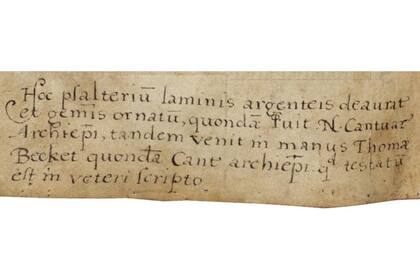 Hoc psalteriū laminis argenteis deaurat
et gem̄is ornatū, quondā fuit N. Cantuar
Archiep̄i, tandem venit in manus Thomæ
Becket quondā Cant archiep̄i. qd testatū
est in veteri scripto